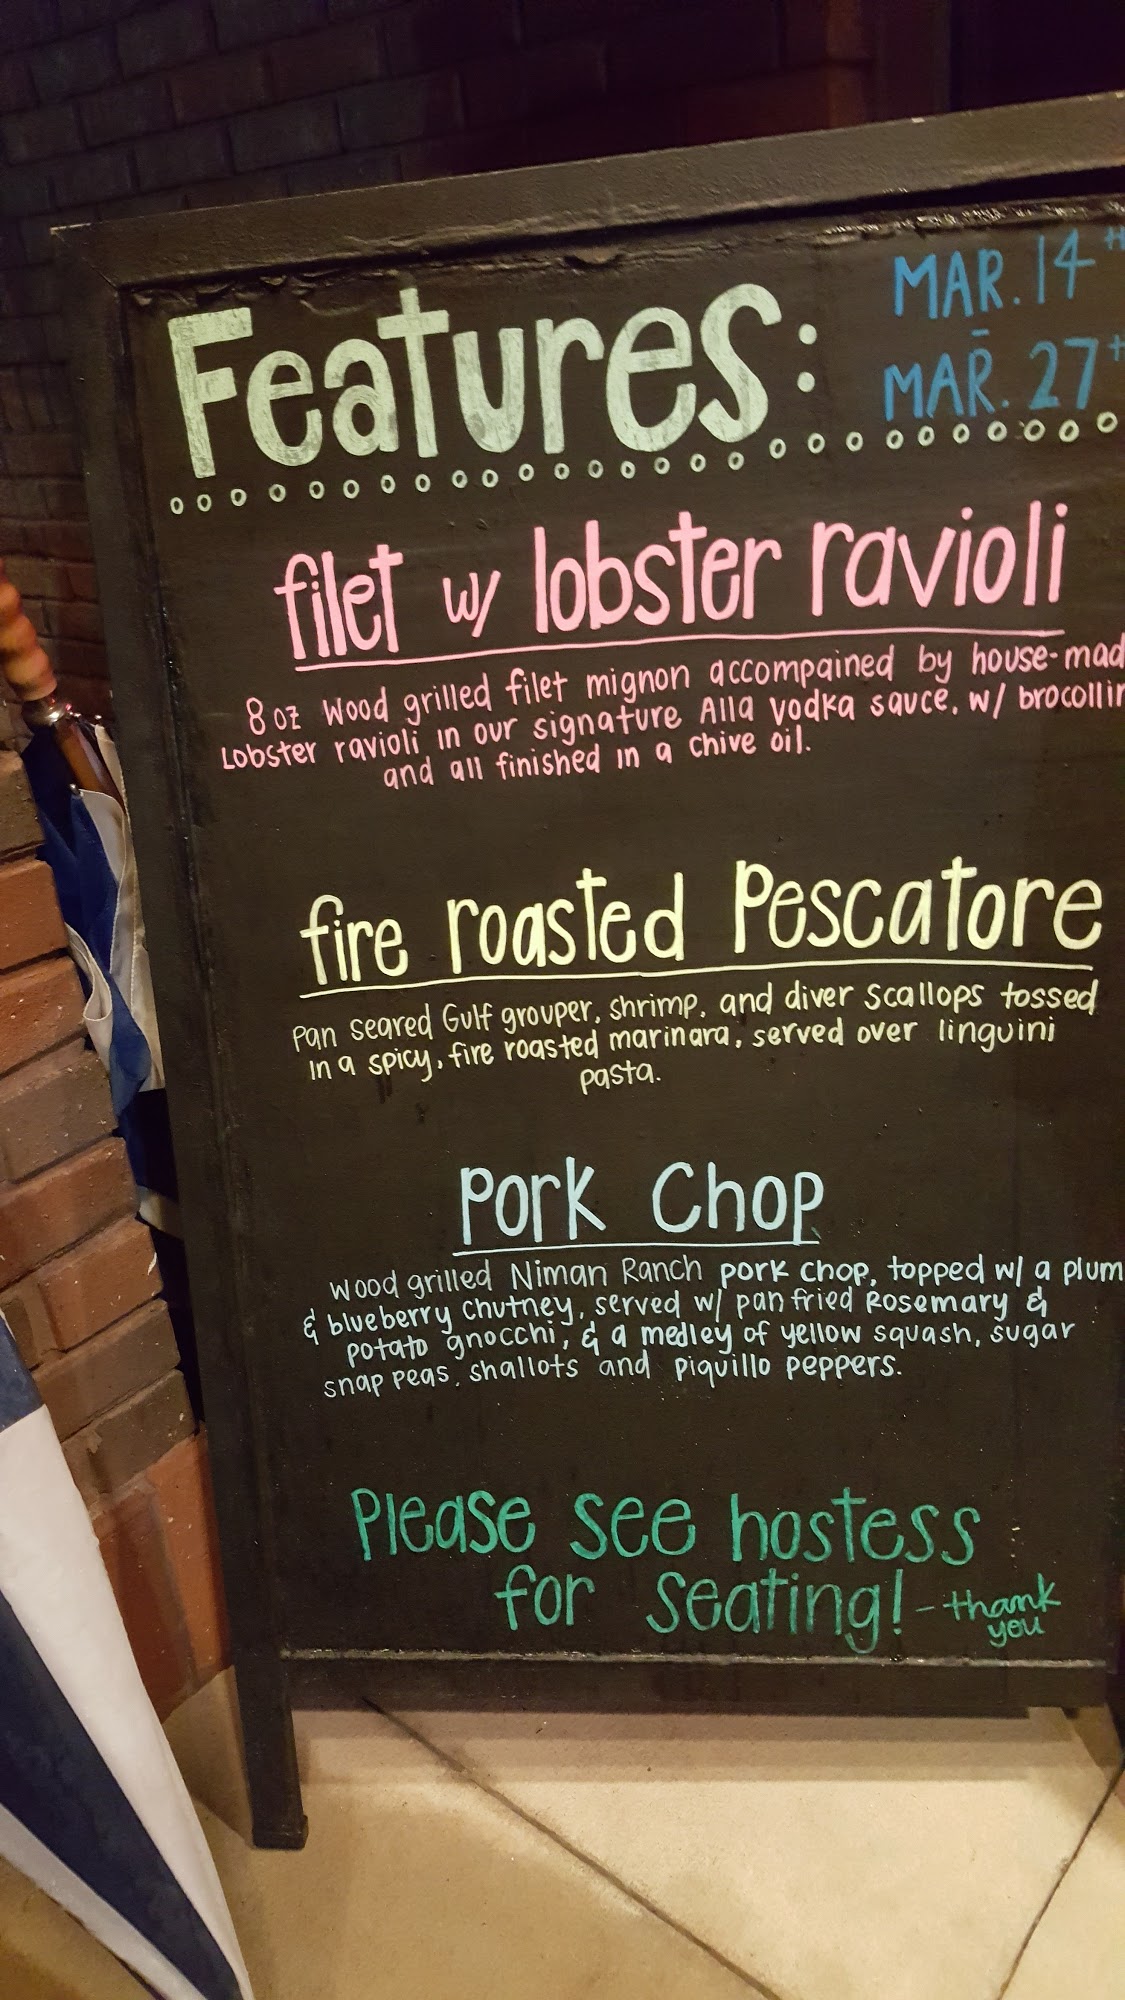 Features:
MAR. 14TH
-
MAR. 27TH
filet w/ lobster ravioli
8 oz Wood grilled filet mignon accompained by house-mad
Lobster ravioli in our signature Alla vodka sauce, w/ brocollin
and all finished in a chive oil.
fire roasted Pescatore
Pan seared Gulf grouper, shrimp, and diver scallops tossed
In a spicy, fire roasted marinara, served over linguini
pasta.
Pork Chop
Wood grilled Niman Ranch pork chop, topped w/ a plum
& blueberry chutney, served w/ pan fried Rosemary &
potato gnocchi, & a medley of yellow squash, sugar
snap peas, shallots and piquillo peppers.
Please see hostess
for seating! - thank
you